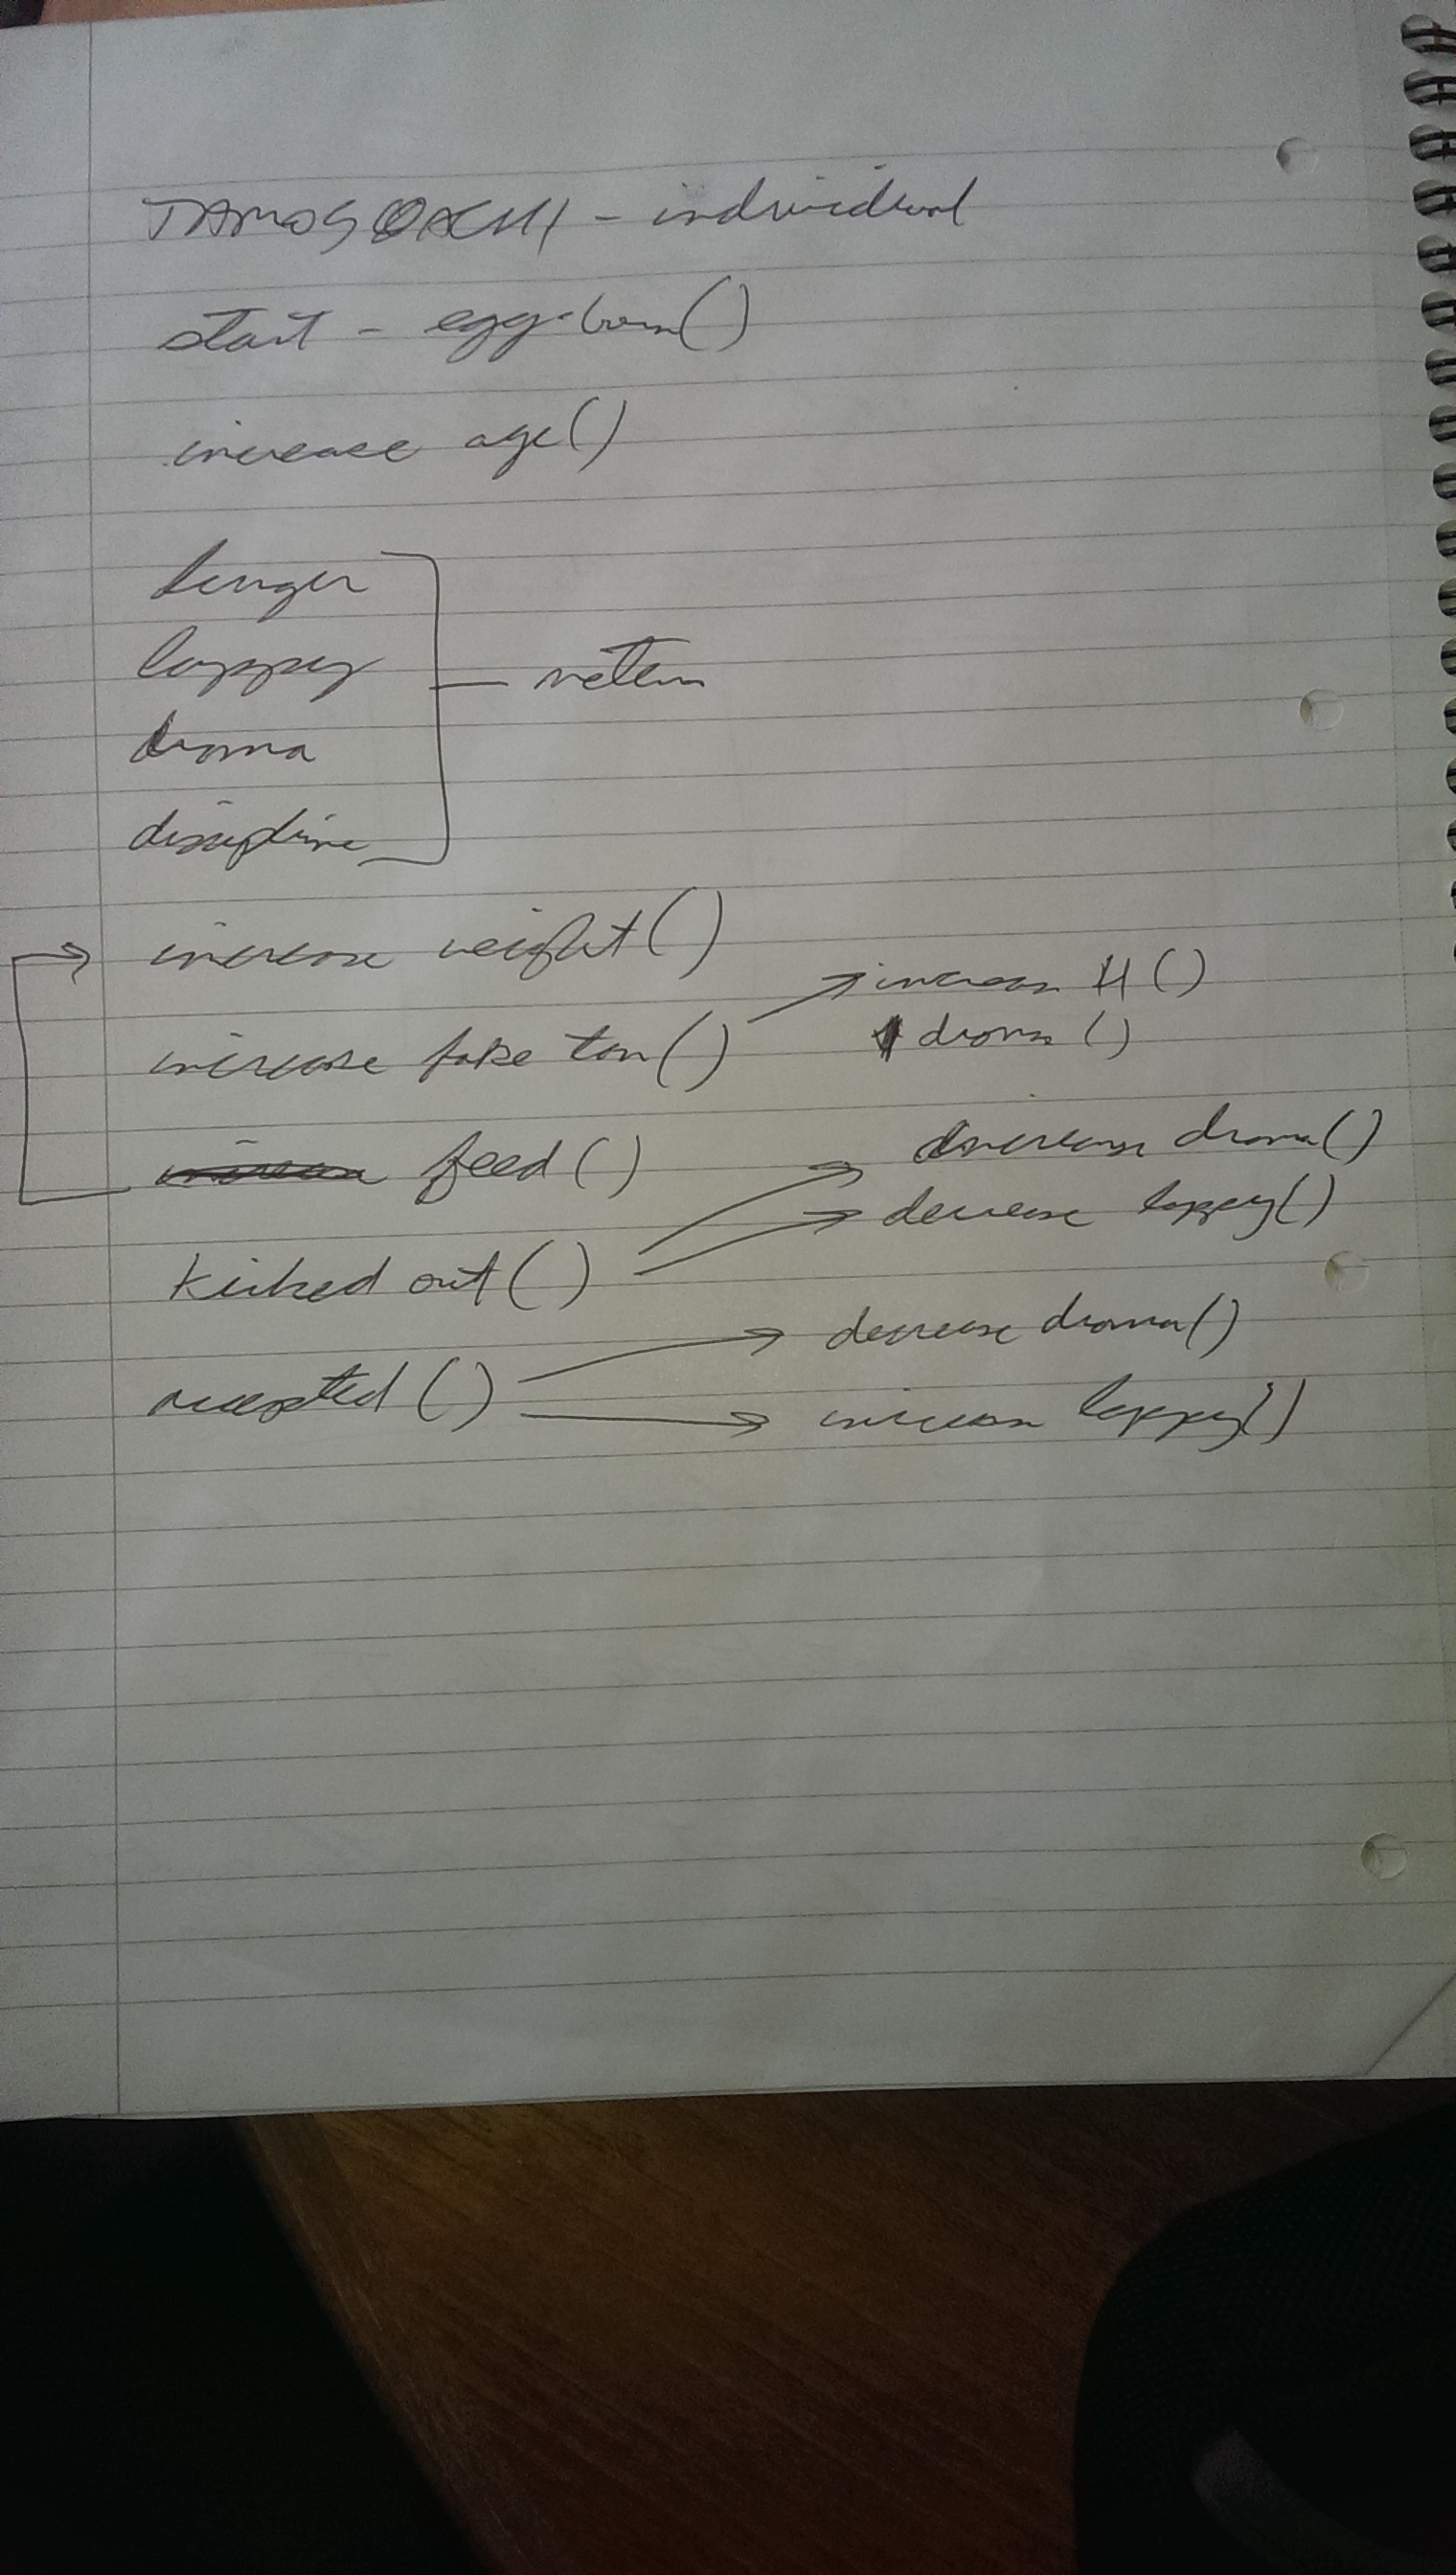 TAMOGOACHI - individual
start - egg.born()
increase age()
hunger
happy
drama
discipline
return
increase weight()
increase fake tan()
increase H()
drama()
feed()
kicked out()
drama()
decrease happy()
accepted()
decrease drama()
increase happy()